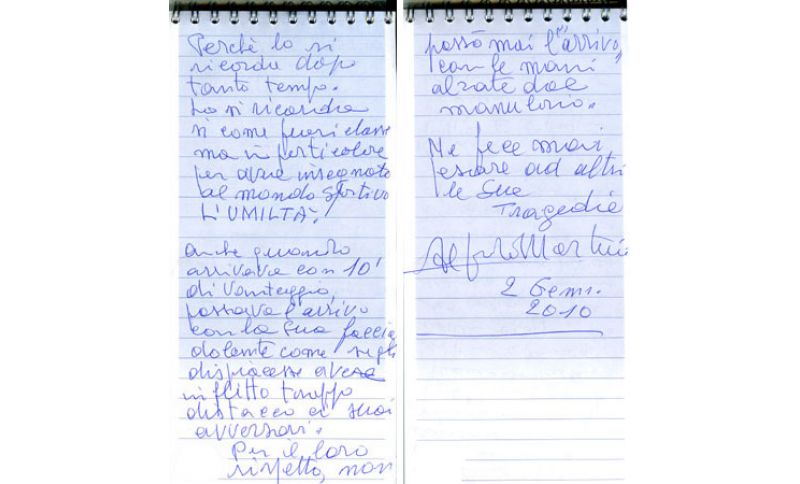 Perchè lo si
ricorda dopo
tanto tempo.
Lo si ricorda
si come fuori classe
ma in particolare
per avere insegnato
al mondo sportivo
L'UMILTÀ!
Anche quando
arrivava con 10'
di vantaggio,
passava l'arrivo
con la sua faccia
dolente come se gli
dispiacesse avere
inflitto troppo
distacco ai suoi
avversari.
Per il loro
rispetto, non
passò mai l'"arrivo"
con le mani
alzate dal
manubrio.
Ne fece mai
pesare ad altri
le Sue
Tragedie
Alfredo Martini
2 Genn.
2010